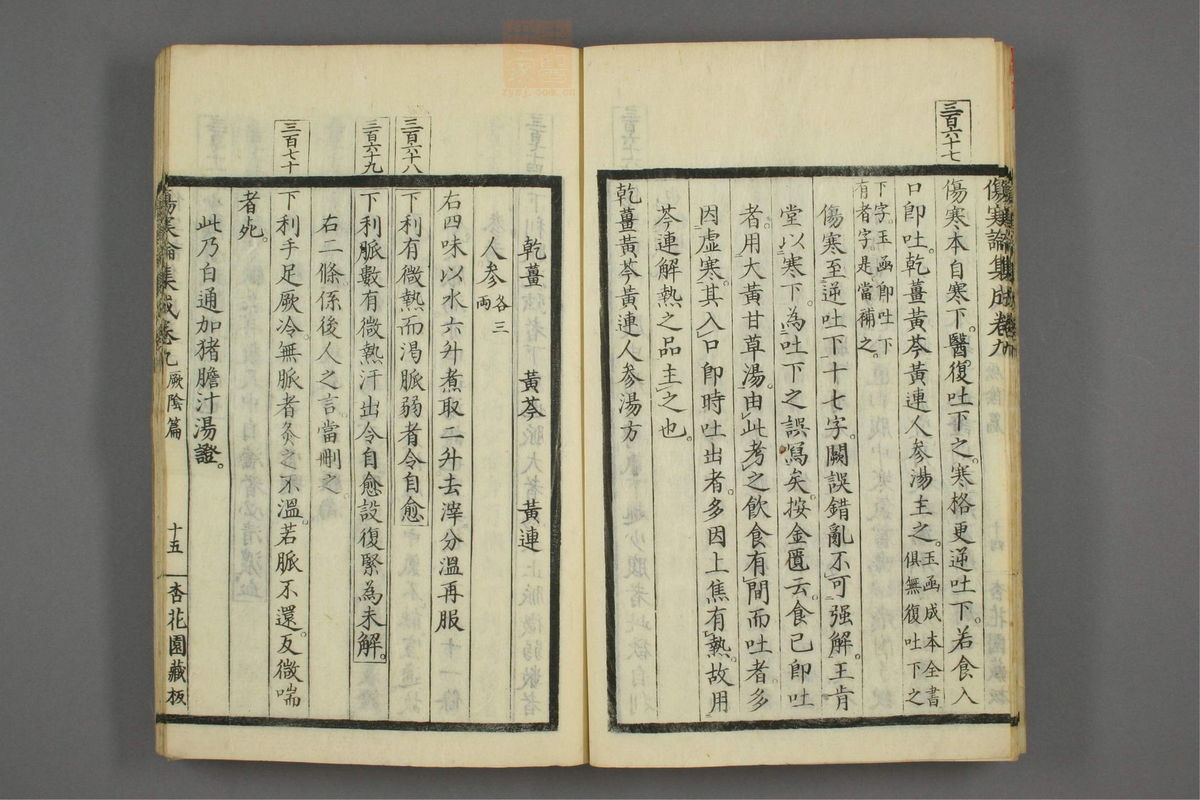 三百六十七
傷寒論集成卷九
傷寒本自寒下。醫復吐下之。寒格更逆吐下。若食入
口即吐。乾薑黃芩黃連人參湯主之。玉函成本全書俱無復吐下之
下字。玉函即吐下有者字。是當補之。
傷寒至逆吐下十七字。闕誤錯亂不可强解。王肯
堂以寒下。為吐下之誤寫矣。按金匱云。食已即吐
者。用大黃甘草湯。由此考之飲食有間而吐者。多
因虛寒。其入口即時吐出者。多因上焦有熱。故用
芩連解熱之品主之也。
乾薑黃芩黃連人參湯方
乾薑 黃芩 黃連
人參各三兩
右四味以水六升煮取二升去滓分溫再服
三百六十八
下利有微熱而渴脈弱者令自愈
三百六十九
下利脈數有微熱汗出令自愈設復緊為未解。
右二條係後人之言。當刪之。
三百七十
下利手足厥冷。無脈者灸之不溫。若脈不還。反微喘
者死。
此乃白通加猪膽汁湯證。
傷寒論集成卷九 厥陰篇 十五 杏花園藏板